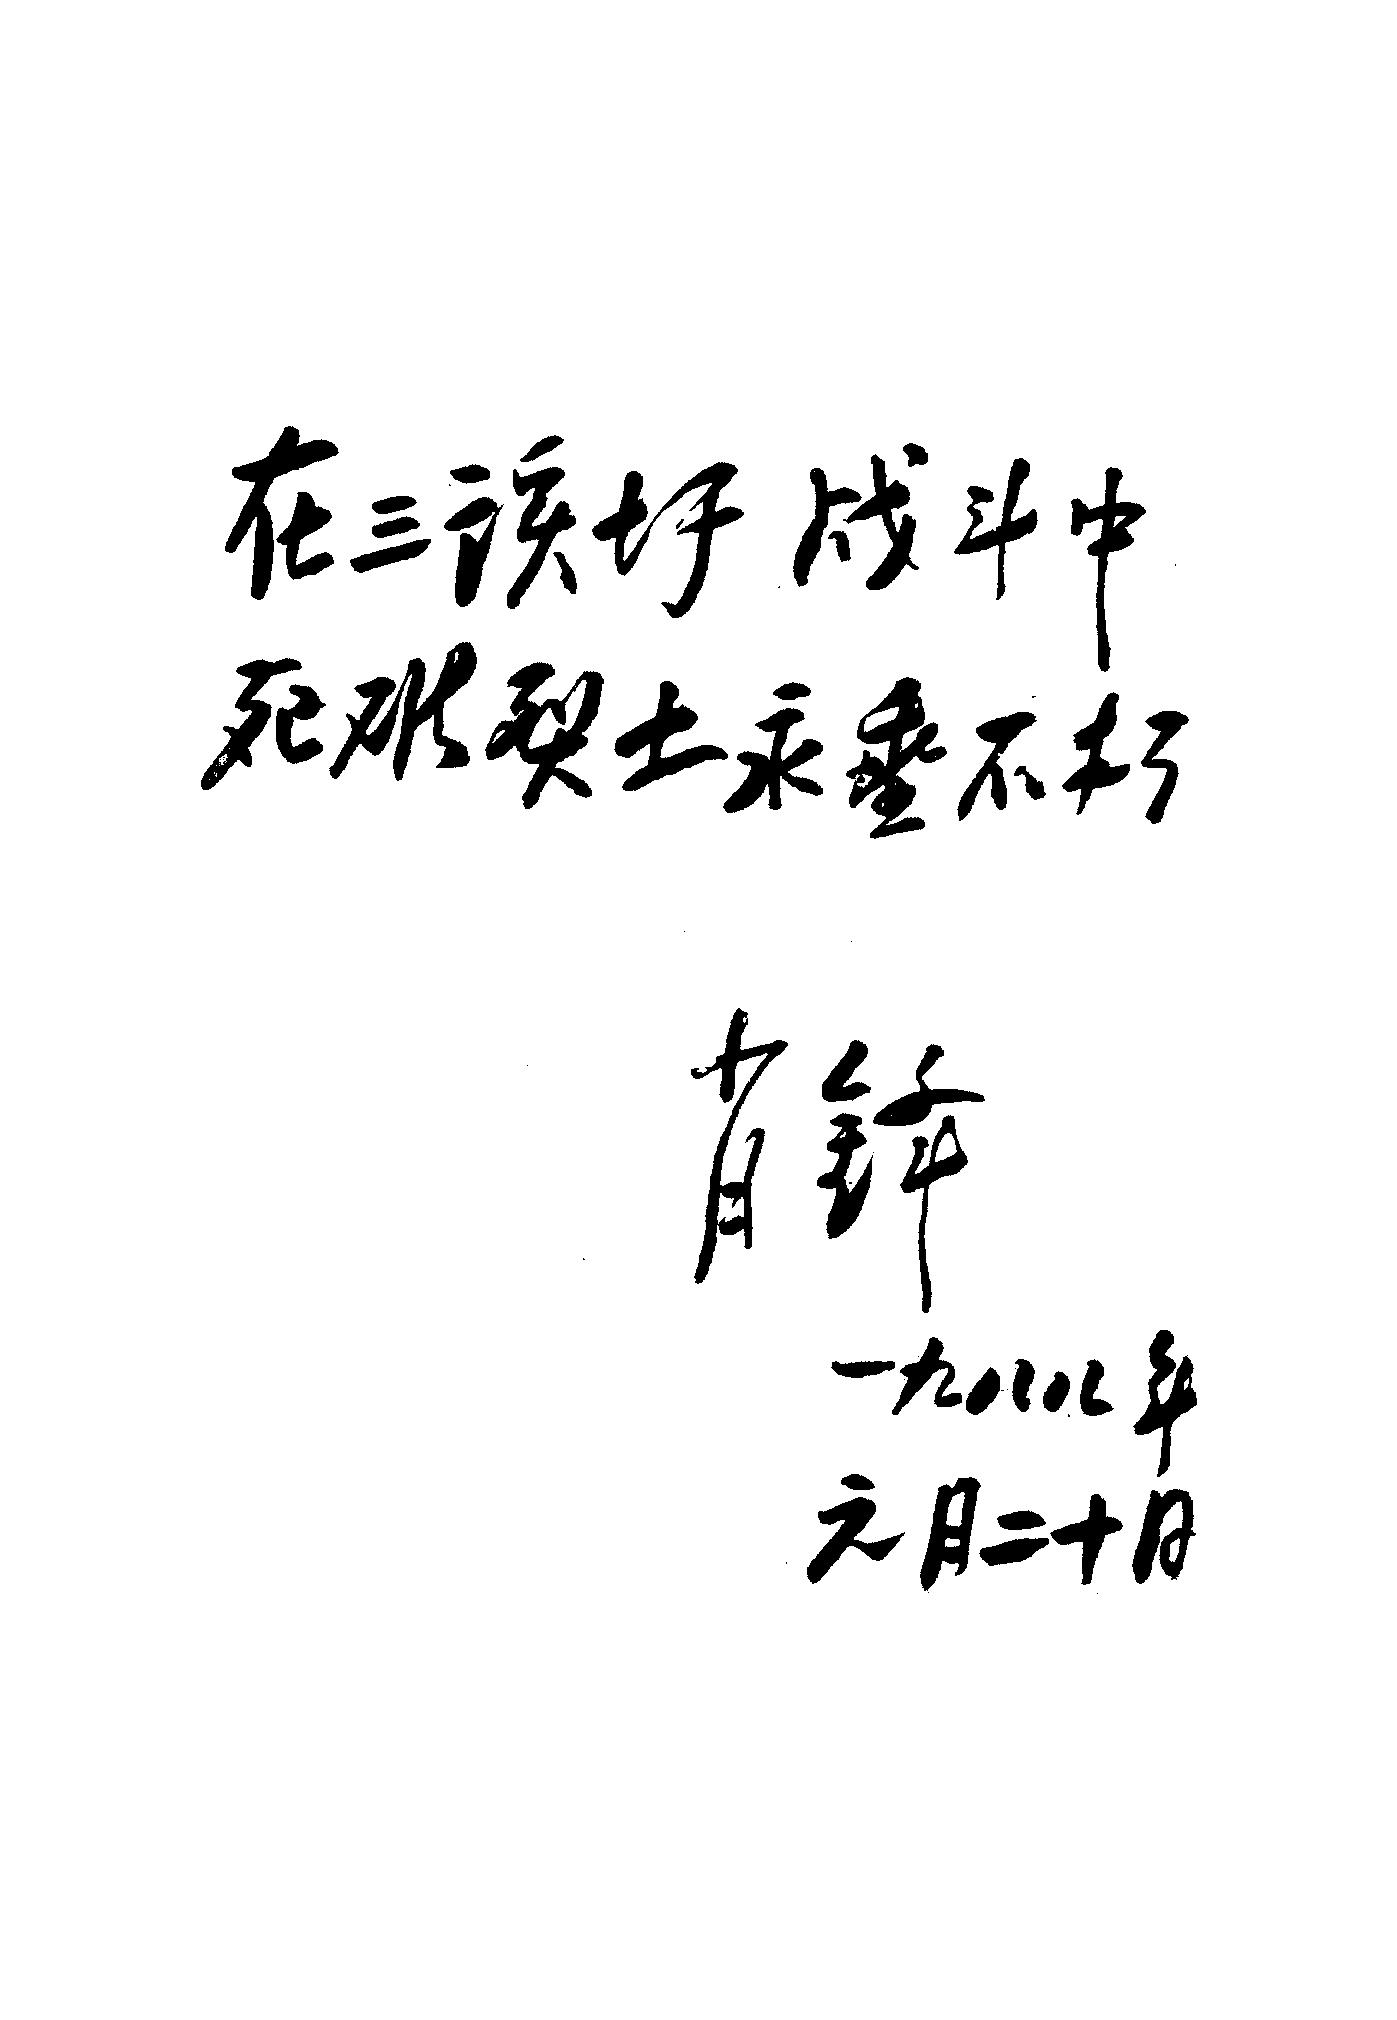 在三该圩战斗中
死难烈士永垂不朽
肖锋
一九八八年
元月二十日